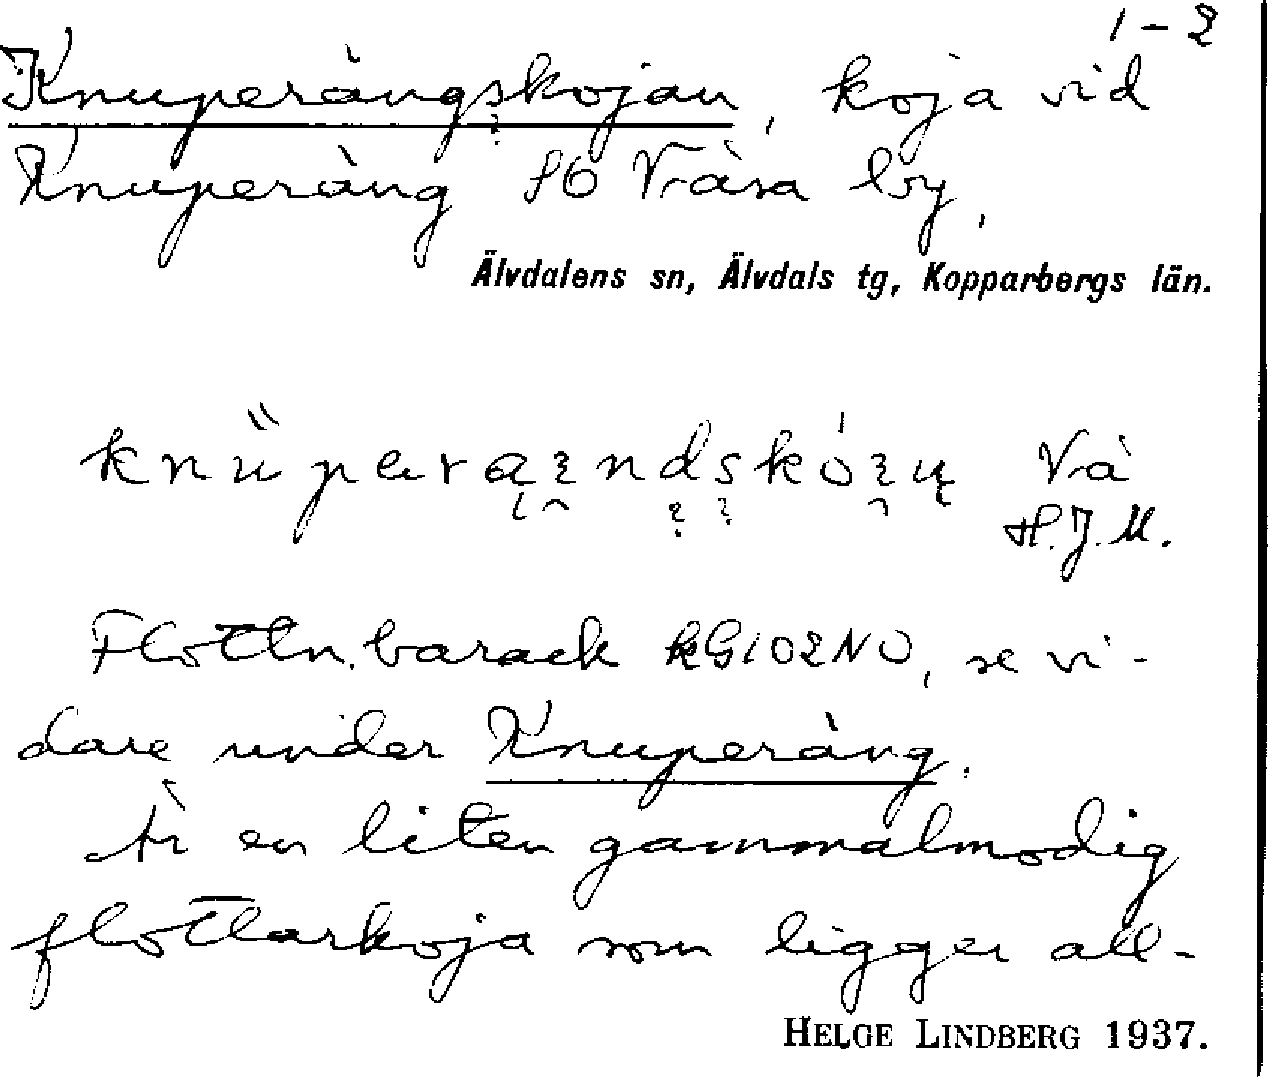 1-2
Knuperängskojan, koja vid
Knuperäng SÖ Våsa by,
Älvdalens sn, Älvdals tg, Kopparbergs län.
Vå
H.J.M.
Flottn.barack kG102NO, se vi-
dare under Knuperäng.
Är en liten gammalmodig
flottarkoja som ligger all-
HELGE LINDBERG 1937.